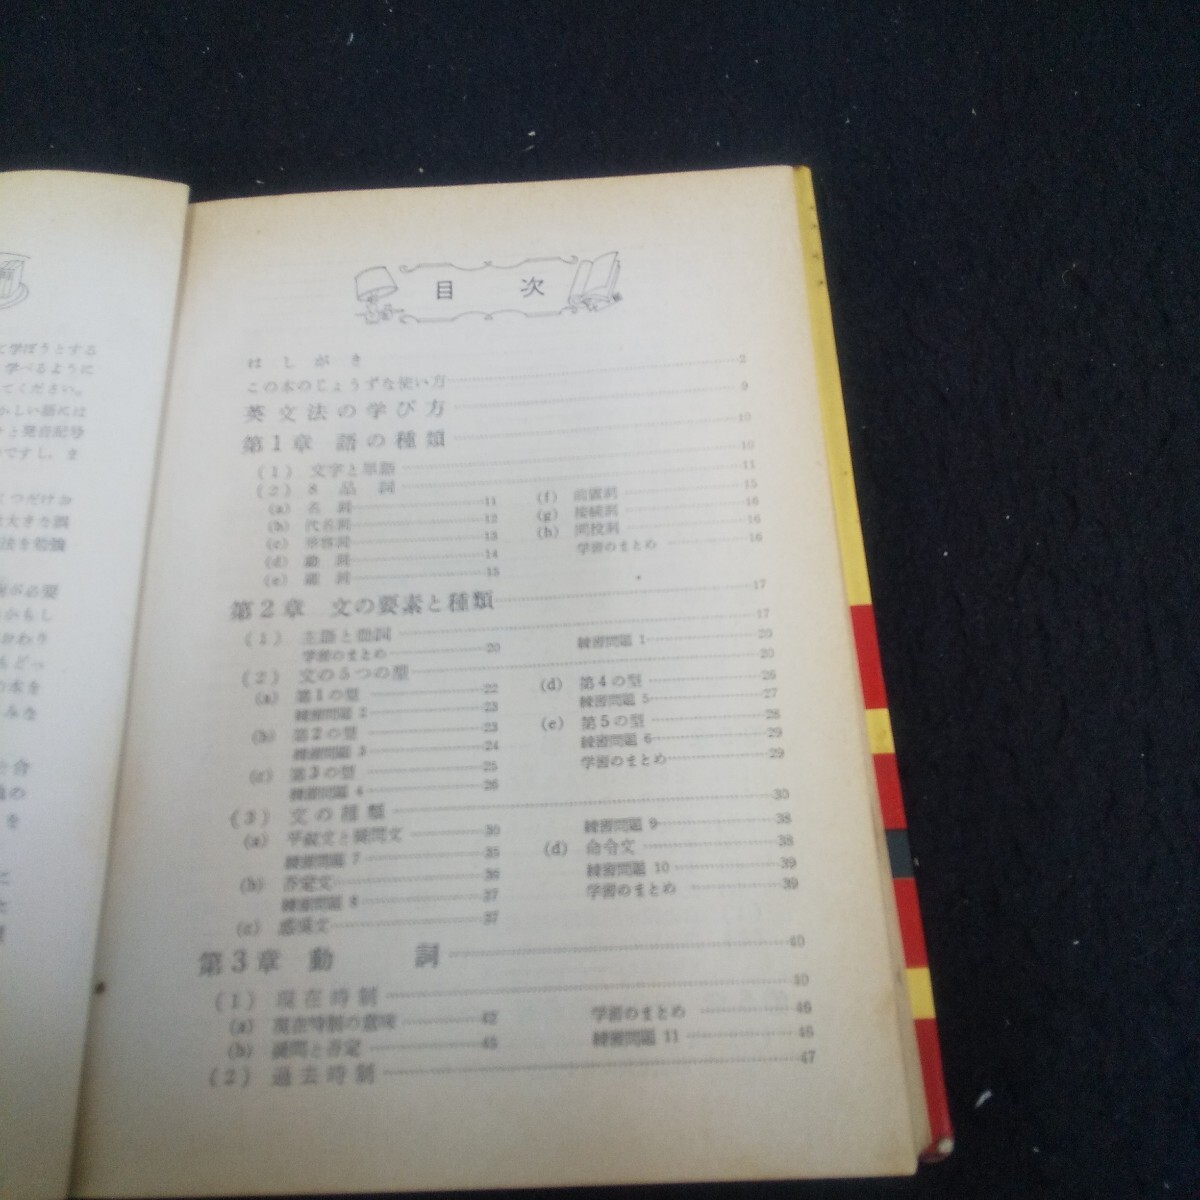 に学ぼうとする
学べるように
てください。
かしい語には
と発音記号
ですし、ま
くつだけお
大きな誤
法を勉強
が必要
かもし
おかわり
もどっ
の本を
みな
た合
の
を
に
た
目次
はしがき 3
この本のじょうずな使い方 9
英文法の学び方 10
第1章 語の種類 10
(1) 文字と単語 11
(2) 8品詞
(a) 名詞 11
(b) 代名詞 12
(c) 形容詞 13
(d) 動詞 14
(e) 副詞 15
(f) 前置詞 15
(g) 接続詞 16
(h) 間投詞 16
学習のまとめ 16
第2章 文の要素と種類 17
(1) 主語と動詞 17
学習のまとめ 20
練習問題 1 20
(2) 文の5つの型 20
(a) 第1の型 22
練習問題 2 23
(b) 第2の型 23
練習問題 3 24
(c) 第3の型 25
練習問題 4 26
(d) 第4の型 26
練習問題 5 27
(e) 第5の型 28
練習問題 6 29
学習のまとめ 29
(3) 文の種類 30
(a) 平叙文と疑問文 30
練習問題 7 35
(b) 否定文 36
練習問題 8 37
(c) 感嘆文 37
練習問題 9 38
(d) 命令文 38
練習問題 10 39
学習のまとめ 39
第3章 動詞 40
(1) 現在時制 40
(a) 現在時制の意味 42
(b) 疑問と否定 45
学習のまとめ 46
練習問題 11 46
(2) 過去時制 47